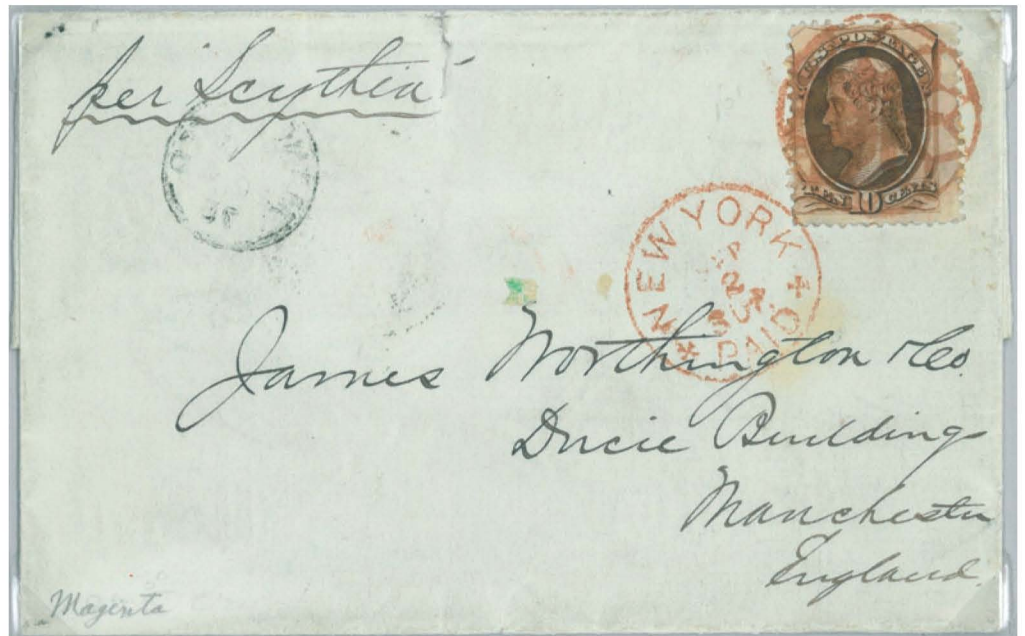 per Scythia
U.S. POSTAGE
TEN 10 CENTS
NEW YORK
PAID
James Worthington & Co.
Ducie Buildings
Manchester
England.
Magenta